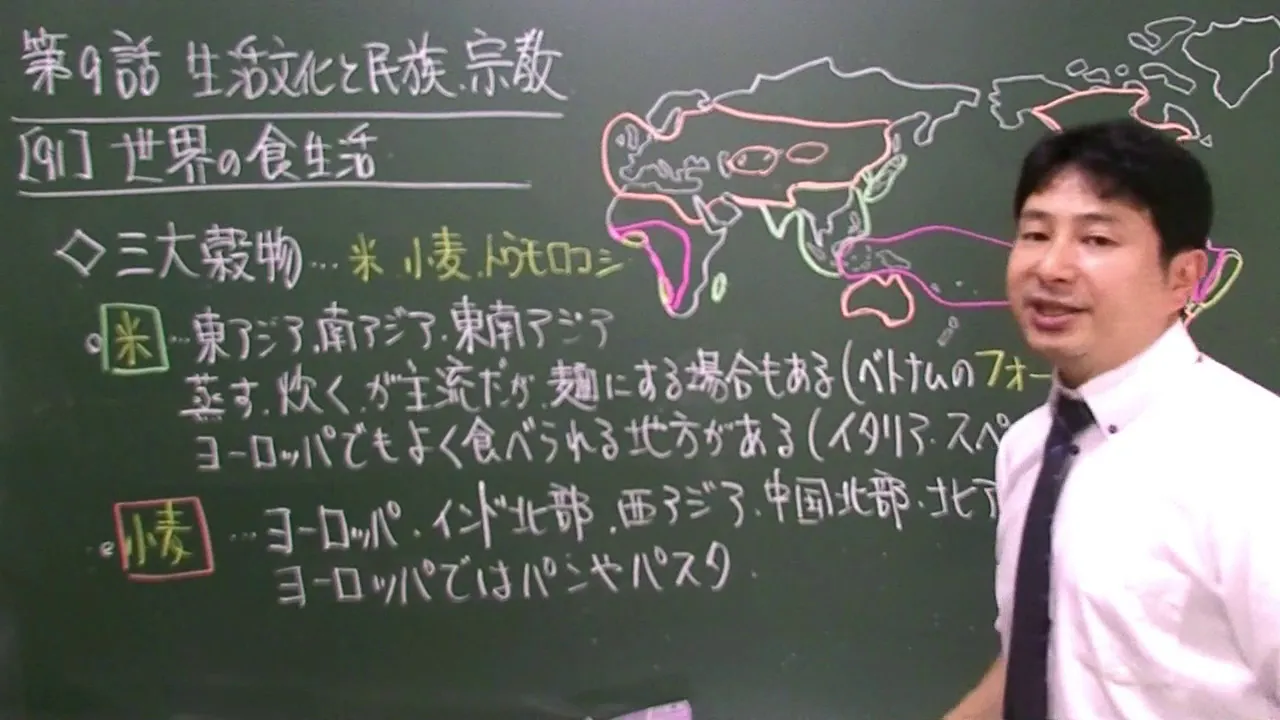 第9話 生活文化と民族、宗教
[91] 世界の食生活
◇三大穀物…米 小麦、トウモロコシ
米…東アジア、南アジア、東南アジア
蒸す、炊く、が主流だが、麺にする場合もある(ベトナムのフォー
ヨーロッパでもよく食べられる地方がある(イタリア、スペ
小麦…ヨーロッパ、インド北部、西アジア、中国北部、北ア
ヨーロッパではパンやパスタ、